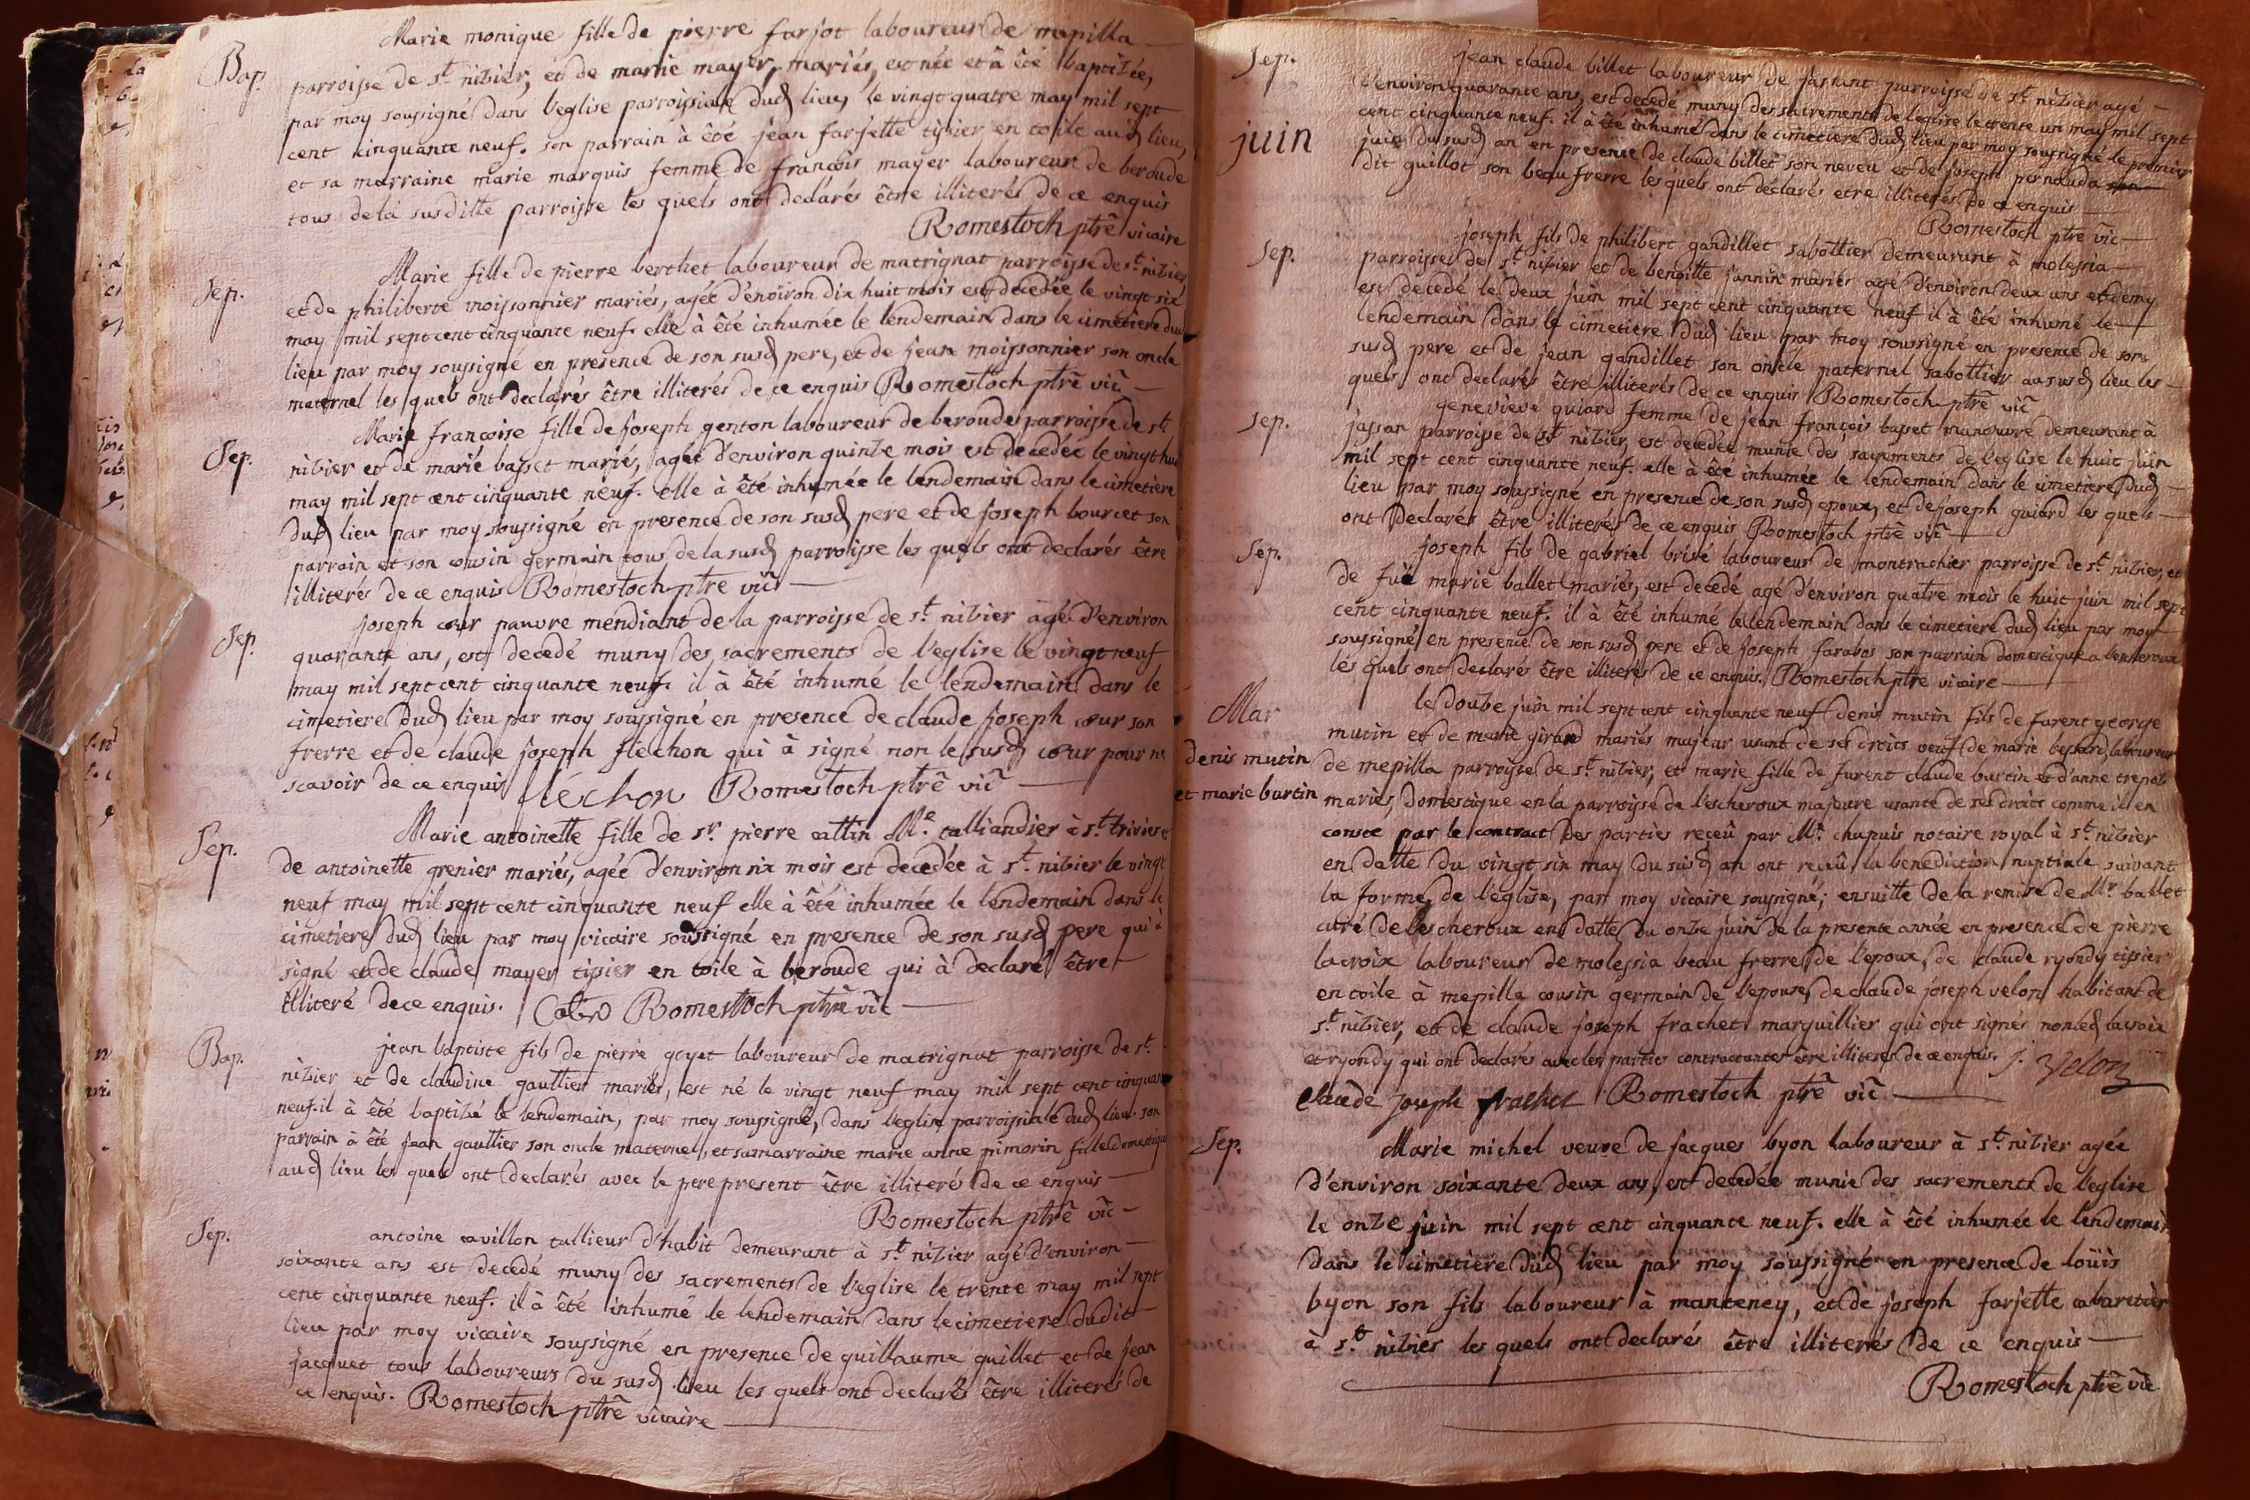 Bap.
Marie monique fille de pierre farjot laboureur de mepilla
parroisse de st. nibier, et de marie mayer, mariés, est née et à été baptisée,
par moy soussigné dans l'eglise parroissiale dud lieu, le vingt quatre may mil sept
cent cinquante neuf. son parrain à été jean farjette tisier en toile aud lieu,
et sa marraine marie marquis femme de françois mayer laboureur de beroude
tous de la susditte parroisse les quels ont declarés être illiterés de ce enquis
Romestoch ptrê vicaire
Sep.
Marie fille de pierre berthet laboureur de matrignat parroisse de st. nibier,
et de philiberte moissonnier mariés, agée d'environ dix huit mois est decedée le vingt six
may mil sept cent cinquante neuf. elle à été inhumée le lendemain dans le cimetiere dud
lieu par moy soussigné en presence de son susd pere, et de jean moissonnier son oncle
maternel les quels ont declarés être illiterés de ce enquis Romestoch ptrê vic
Sep.
Marie françoise fille de joseph genton laboureur de beroude parroisse de st.
nibier et de marie basset mariés, agée d'environ quinze mois est decedée le vingt huit
may mil sept cent cinquante neuf. elle à été inhumée le lendemain dans le cimetiere
dud lieu par moy soussigné en presence de son susd pere et de joseph bourcet son
parrain et son cousin germain tous de la susd parroisse les quels ont declarés être
illiterés de ce enquis Romestoch ptre vic
Sep.
joseph cœur pauvre mendiant de la parroisse de st. nibier agé d'environ
quarante ans, est decedé muny des sacrements de l'eglise le vingt neuf
may mil sept cent cinquante neuf. il à été inhumé le lendemain dans le
cimetiere dud lieu par moy soussigné en presence de claude joseph cœur son
frerre et de claude joseph flechon qui à signé non le susd cœur pour ne
scavoir de ce enquis fléchon Romestoch ptrê vic
Sep.
Marie antoinette fille de sr. pierre cattin Me. talliandier à st. trivier et
de antoinette grenier mariés, agée d'environ six mois est decedée à st. nibier le vingt
neuf may mil sept cent cinquante neuf elle à été inhumée le lendemain dans le
cimetiere dud lieu par moy vicaire soussigné en presence de son susd pere qui à
signé et de claude mayer tisier en toile à beroude qui à declaré être
illiteré de ce enquis. Romestoch ptrê vic
Bap.
jean baptiste fils de pierre goyet laboureur de matrignat parroisse de st.
nibier et de claudine gaultier mariés, est né le vingt neuf may mil sept cent cinquante
neuf. il à été baptisé le lendemain, par moy soussigné, dans l'eglise parroissiale dud lieu. son
parrain à été jean gaultier son oncle maternel, et sa marraine marie anne pimorin fille domestique
aud lieu les quels ont declarés avec le pere present être illiterés de ce enquis
Romestoch ptrê vic
Sep.
antoine cavillon tallieur d'habit demeurant à st. nibier agé d'environ
soixante ans est decedé muny des sacrements de l'eglise le trente may mil sept
cent cinquante neuf. il à été inhumé le lendemain dans le cimetiere dudit
lieu par moy vicaire soussigné en presence de guillaume guillet et de jean
jacquet tous laboureurs du susd lieu les quels ont declarés être illiterés de
ce enquis. Romestoch ptrê vicaire
Sep.
jean claude billet laboureur de jassant parroisse de st. nibier agé
d'environ quarante ans, est decedé muny des sacrements de l'eglise le trente un may mil sept
cent cinquante neuf. il à été inhumé dans le cimetiere dud lieu par moy soussigné le premier
juin
juin du susd an en presence de claude billet son neveu et de joseph pernauda
dit guillot son beau frerre les quels ont declarés etre illiterés de ce enquis
Romestoch ptre vic
Sep.
joseph fils de philibert gandillet sabottier demeurant à molessia
parroisse de st. nibier et de benoitte jannin mariés agé d'environ deux ans et demy
est decedé le deux juin mil sept cent cinquante neuf il à été inhumé le
lendemain dans le cimetiere dud lieu par moy soussigné en presence de son
susd pere et de jean gandillet son oncle paternel sabottier au susd lieu les
quels ont declarés être illiterés de ce enquis Romestoch ptrê vic
Sep.
genevieve guiard femme de jean françois basset manœuvre demeurant à
jassan parroisse de st. nibier, est decedée munie des sacrements de l'eglise le huit juin
mil sept cent cinquante neuf. elle à été inhumée le lendemain dans le cimetiere dud
lieu par moy soussigné en presence de son susd epoux, et de joseph guiard les quels
ont declarés être illiterés de ce enquis Romestoch ptrê vic
Sep.
joseph fils de gabriel brisé laboureur de montrachier parroisse de st. nibier, et
de fuë marie ballet mariés, est decedé agé d'environ quatre mois le huit juin mil sept
cent cinquante neuf. il à été inhumé le lendemain dans le cimetiere dud lieu par moy
soussigné en presence de son susd pere et de joseph farabos son parrain domestique a lescheroux
les quels ont declarés être illiterés de ce enquis. Romestoch ptre vicaire
Mar
denis mutin
et marie burtin
le douze juin mil sept cent cinquante neuf denis mutin fils de furent george
mutin et de marie girard mariés majeur usant de ses droits veuf de marie besard, laboureur
de mepilla parroisse de st. nibier, et marie fille de furent claude burtin et d'anne trepoz
mariés, domestique en la parroisse de l'escheroux majeure usante de ses droits comme il en
conste par le contract des parties reçeû par Mr. chapuis notaire royal à st. nibier
en datte du vingt six may du susd an ont reçeû la benediction nuptiale suivant
la forme de l'eglise, par moy vicaire soussigné; ensuitte de la remise de Mr. ballet
curé de lescheroux en datte du onze juin de la presente année en presence de pierre
lacroix laboureur de molessia beau frerre de l'epoux, de claude ryondy tissier
en toile à mepilla cousin germain de l'epouse, de claude joseph velon habitant de
st. nibier, et de claude joseph frachet marguillier qui ont signés non led lacroix
et ryondy qui ont declarés avec les parties contractantes être illiterés de ce enquis. j. Velon
claude joseph frachet Romestoch ptrê vic
Sep.
Marie michel veuve de jacques byon laboureur à st. nibier agée
d'environ soixante deux ans, est decedée munie des sacrements de l'eglise
le onze juin mil sept cent cinquante neuf. elle à été inhumée le lendemain
dans le cimetiere dud lieu par moy soussigné en presence de loüis
byon son fils laboureur à manteney, et de joseph farjette cabaretier
à st. nibier les quels ont declarés être illiterés de ce enquis
Romestoch ptrê vic